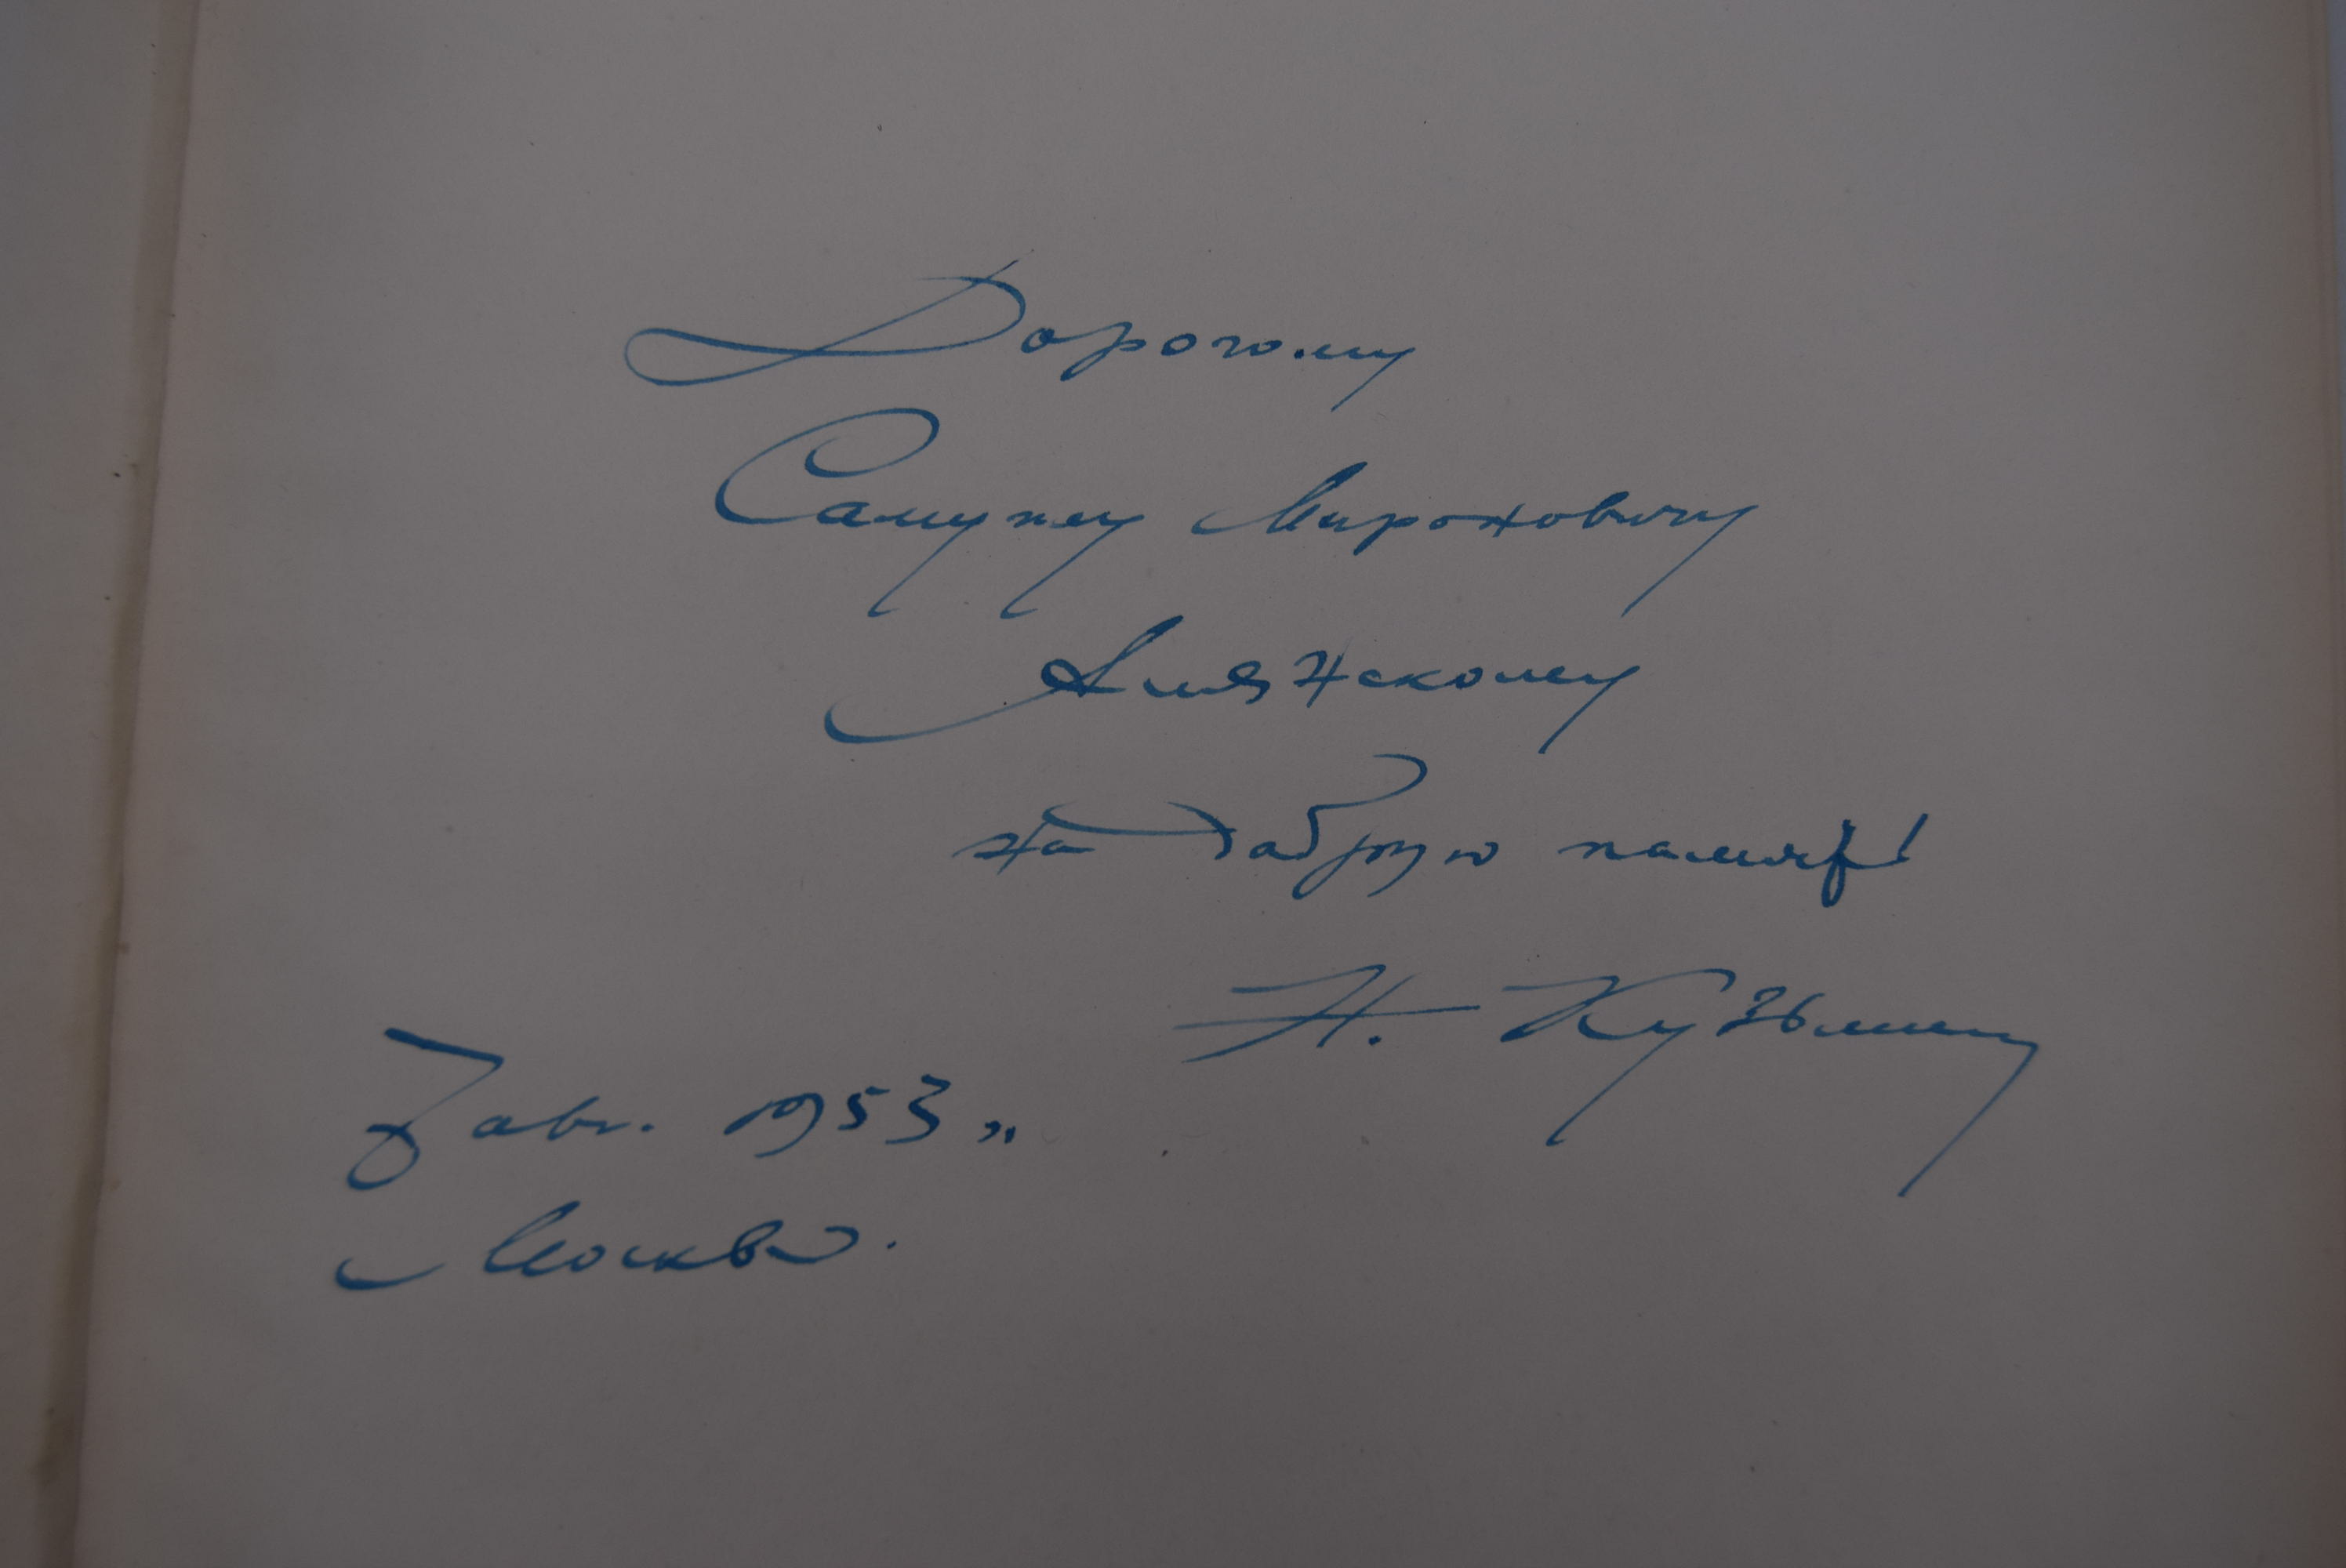 Дорогому
Самуилу Мироновичу
Алянскому
на добрую память!
Н. Кузьмин
7 авг. 1953 г.
Москва.